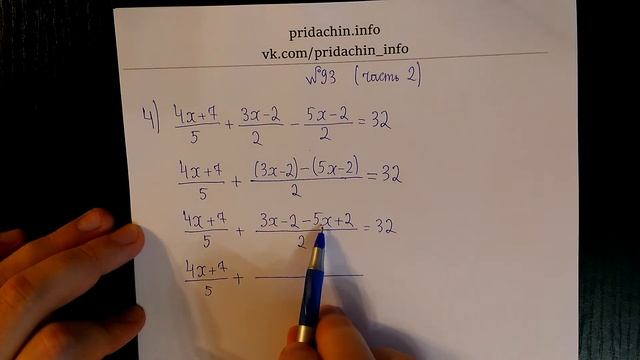 pridachin.info
vk.com/pridachin_info
№93 (часть 2)
4) (4x+7)/5 + (3x-2)/2 - (5x-2)/2 = 32
(4x+7)/5 + ((3x-2)-(5x-2))/2 = 32
(4x+7)/5 + (3x-2-5x+2)/2 = 32
(4x+7)/5 +